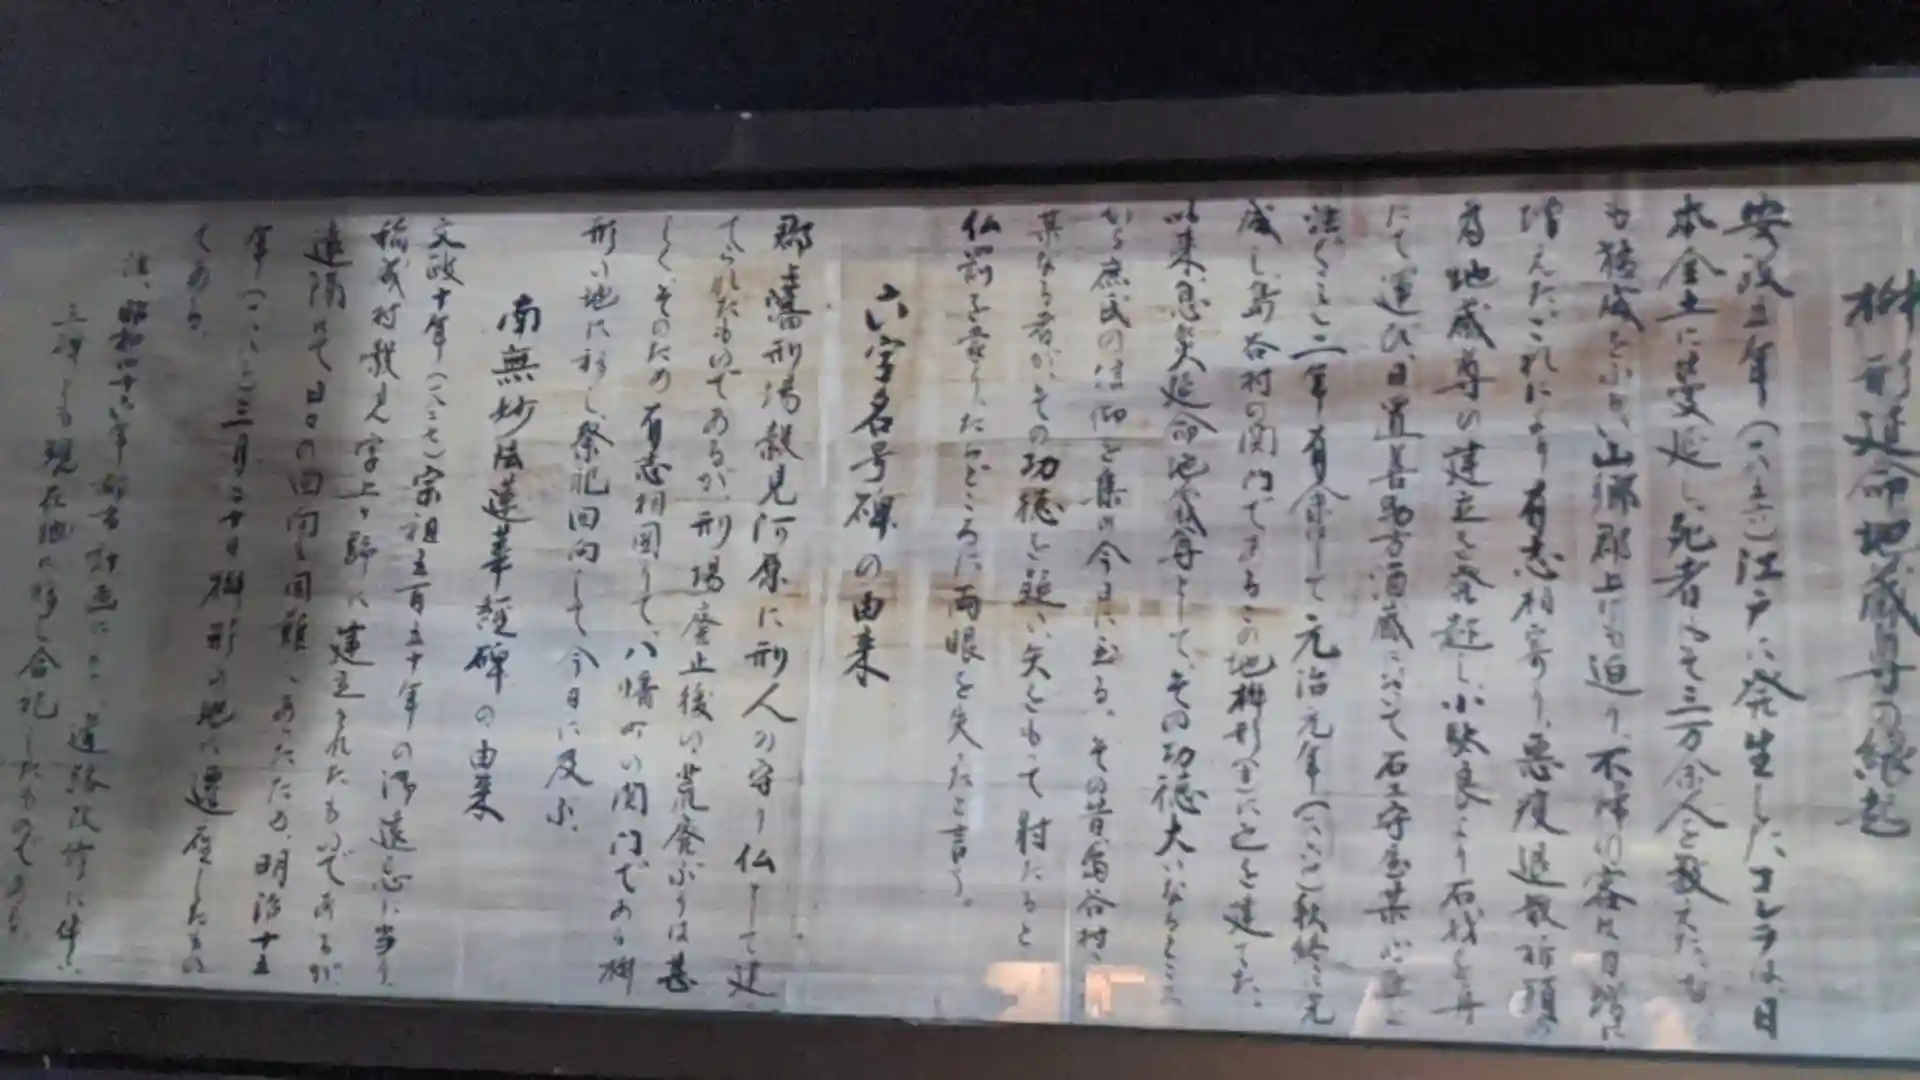 桝形延命地蔵尊の縁起
安政五年(一八五八)江戸に発生したコレラは、日
本全土に蔓延し、死者およそ三万余人と数えた。も
も猛威をふるい、山郷郡上にも迫り、不帰の客は日増に
増えた。これにより有志相寄り、悪疫退散祈願の
為地蔵尊の建立を発起し、小駄良より石材を舟
にて運び、日置善助方酒蔵において石工守屋某
注ぐこと二年有余にして元治元年(一八六四)秋終に完
成し、島谷村の関門であるこの地桝形に之を建てた。
以来、息災延命地蔵尊として、その功徳大いなるところ
から庶民の信仰を集め今日に至る。その昔、島谷村の
某なる者が、その功徳を疑い、矢をもって射たると
仏罰を蒙り、たちどころに両眼を失ったと言う。
六字名号碑の由来
郡上藩刑場穀見河原に刑人の守り仏として建
てられたものであるが、刑場廃止後の荒廃ぶりは甚
しく、そのため有志相図りて、八幡町の関門である桝
形の地に移し、祭祀回向して今日に及ぶ。
南無妙法蓮華経碑の由来
文政十年(一八二七)宗祖五百五十年の御遠忌に当り
稲成村穀見字上ヶ蹄に建立されたものであるが
遠隔にて日々の回向も困難であったため、明治十五
年(一八八二)三月二十日桝形の地に遷座したもの
である。
注、昭和四十六年都市計画による道路改修に伴い
三碑とも現在地に移し合祀したものである。